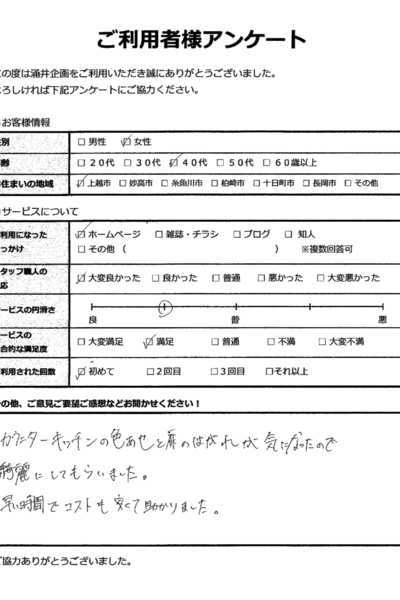 ご利用者様アンケート
の度は涌井企画をご利用いただき誠にありがとうございました。
ろしければ下記アンケートにご協力ください。
お客様情報
別 □ 男性 ☑ 女性
齢 □ 20代 □ 30代 ☑ 40代 □ 50代 □ 60歳以上
住まいの地域 ☑ 上越市 □ 妙高市 □ 糸魚川市 □ 柏崎市 □ 十日町市 □ 長岡市 □ その他
サービスについて
利用になった ☑ ホームページ □ 雑誌・チラシ □ ブログ □ 知人
っかけ □ その他 ( ) ※複数回答可
タッフ職人の
応 ☑ 大変良かった □ 良かった □ 普通 □ 悪かった □ 大変悪かった
ービスの円滑さ
良 普 悪
ービスの
合的な満足度 □ 大変満足 ☑ 満足 □ 普通 □ 不満 □ 大変不満
利用された回数 ☑ 初めて □ 2回目 □ 3回目 □ それ以上
の他、ご意見ご要望ご感想などお聞かせください！
カウンターキッチンの色あせと扉のはがれが気になったので
綺麗にしてもらいました。
早い時間でコストも安くて助かりました。
協力ありがとうございました。